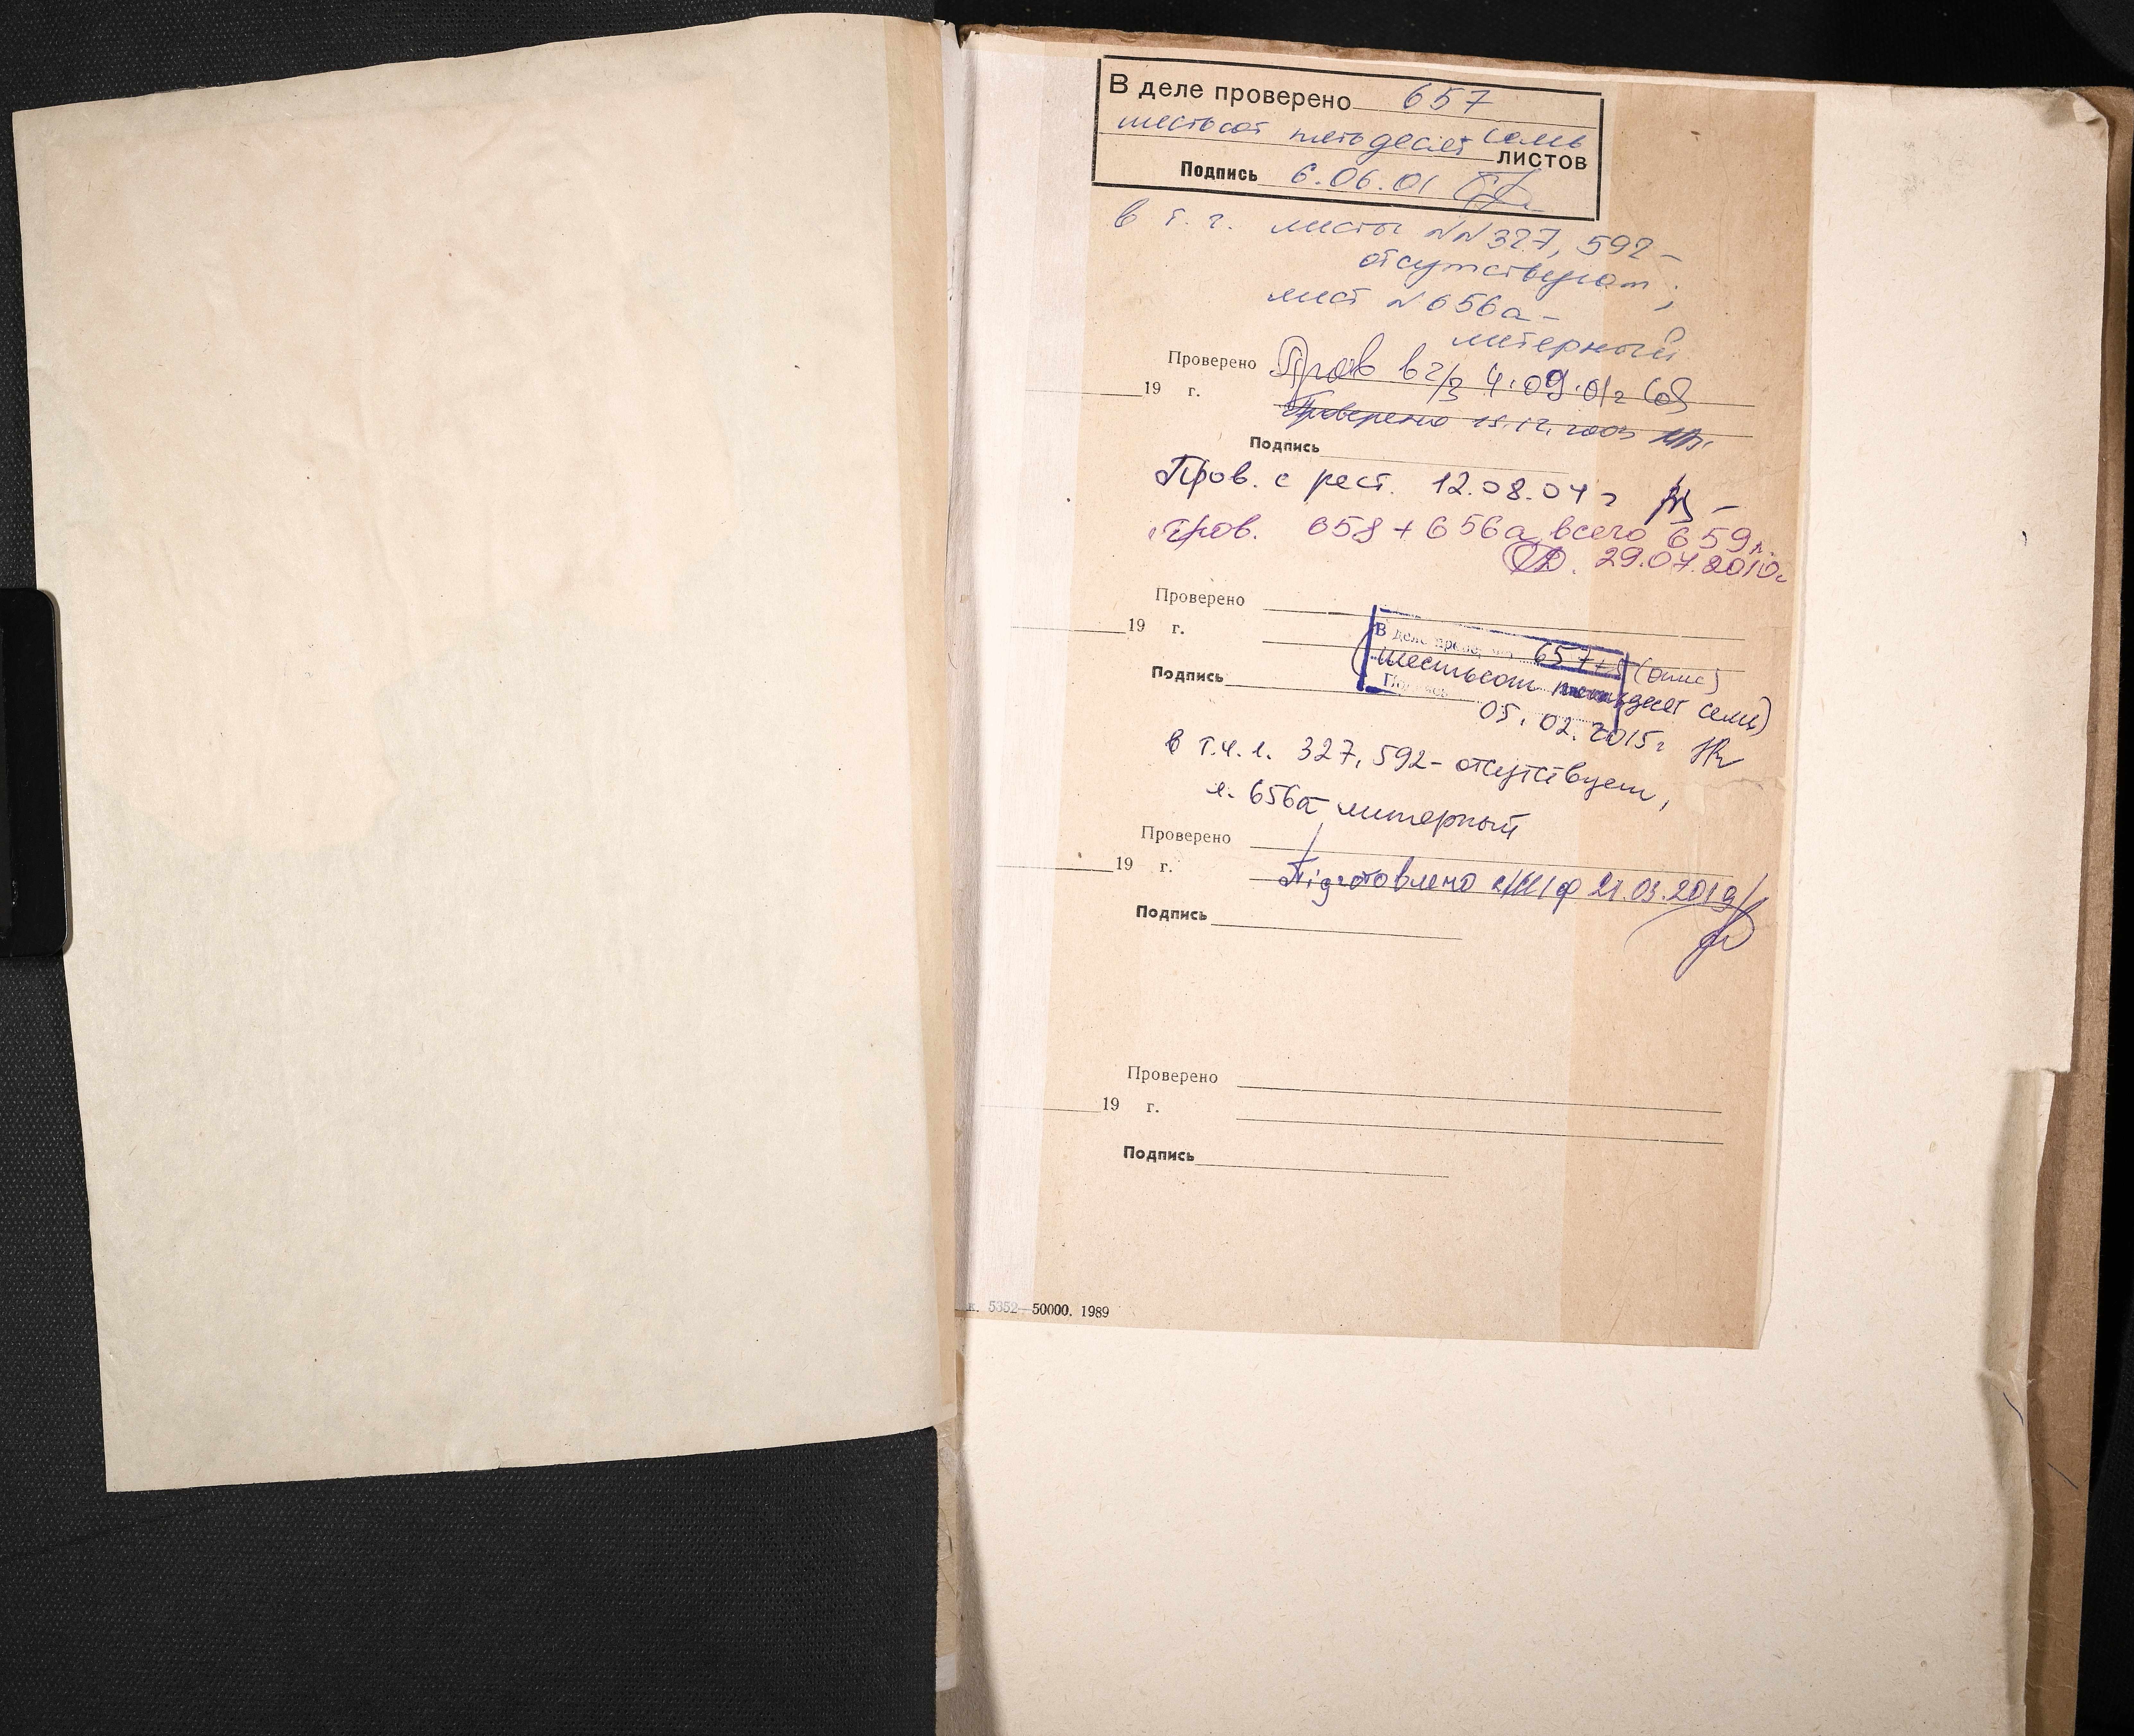 В деле проверено 657
шестьсот пятьдесят семь
листов
Подпись 6.06.01
в т. ч. листы NN 327, 592 –
отсутствуют;
лист N 656а –
литерный
Проверено Пров в г/з 4.09.01г
19 г.
Проверено 15.12.2003
Подпись
Пров. с рест. 12.08.04 г
Пров. 658 + 656а всего 659л.
29.07.2010г
Проверено
19 г.
В деле 657 (опис)
(шестьсот пятьдесят семь)
Подпись
05.02.2015г
в т.ч. л. 327, 592 – отсутствуют,
л. 656а литерный
Проверено
19 г.
Підготовлено 21.03.2019
Подпись
Проверено
19 г.
Подпись
5352—50000. 1989